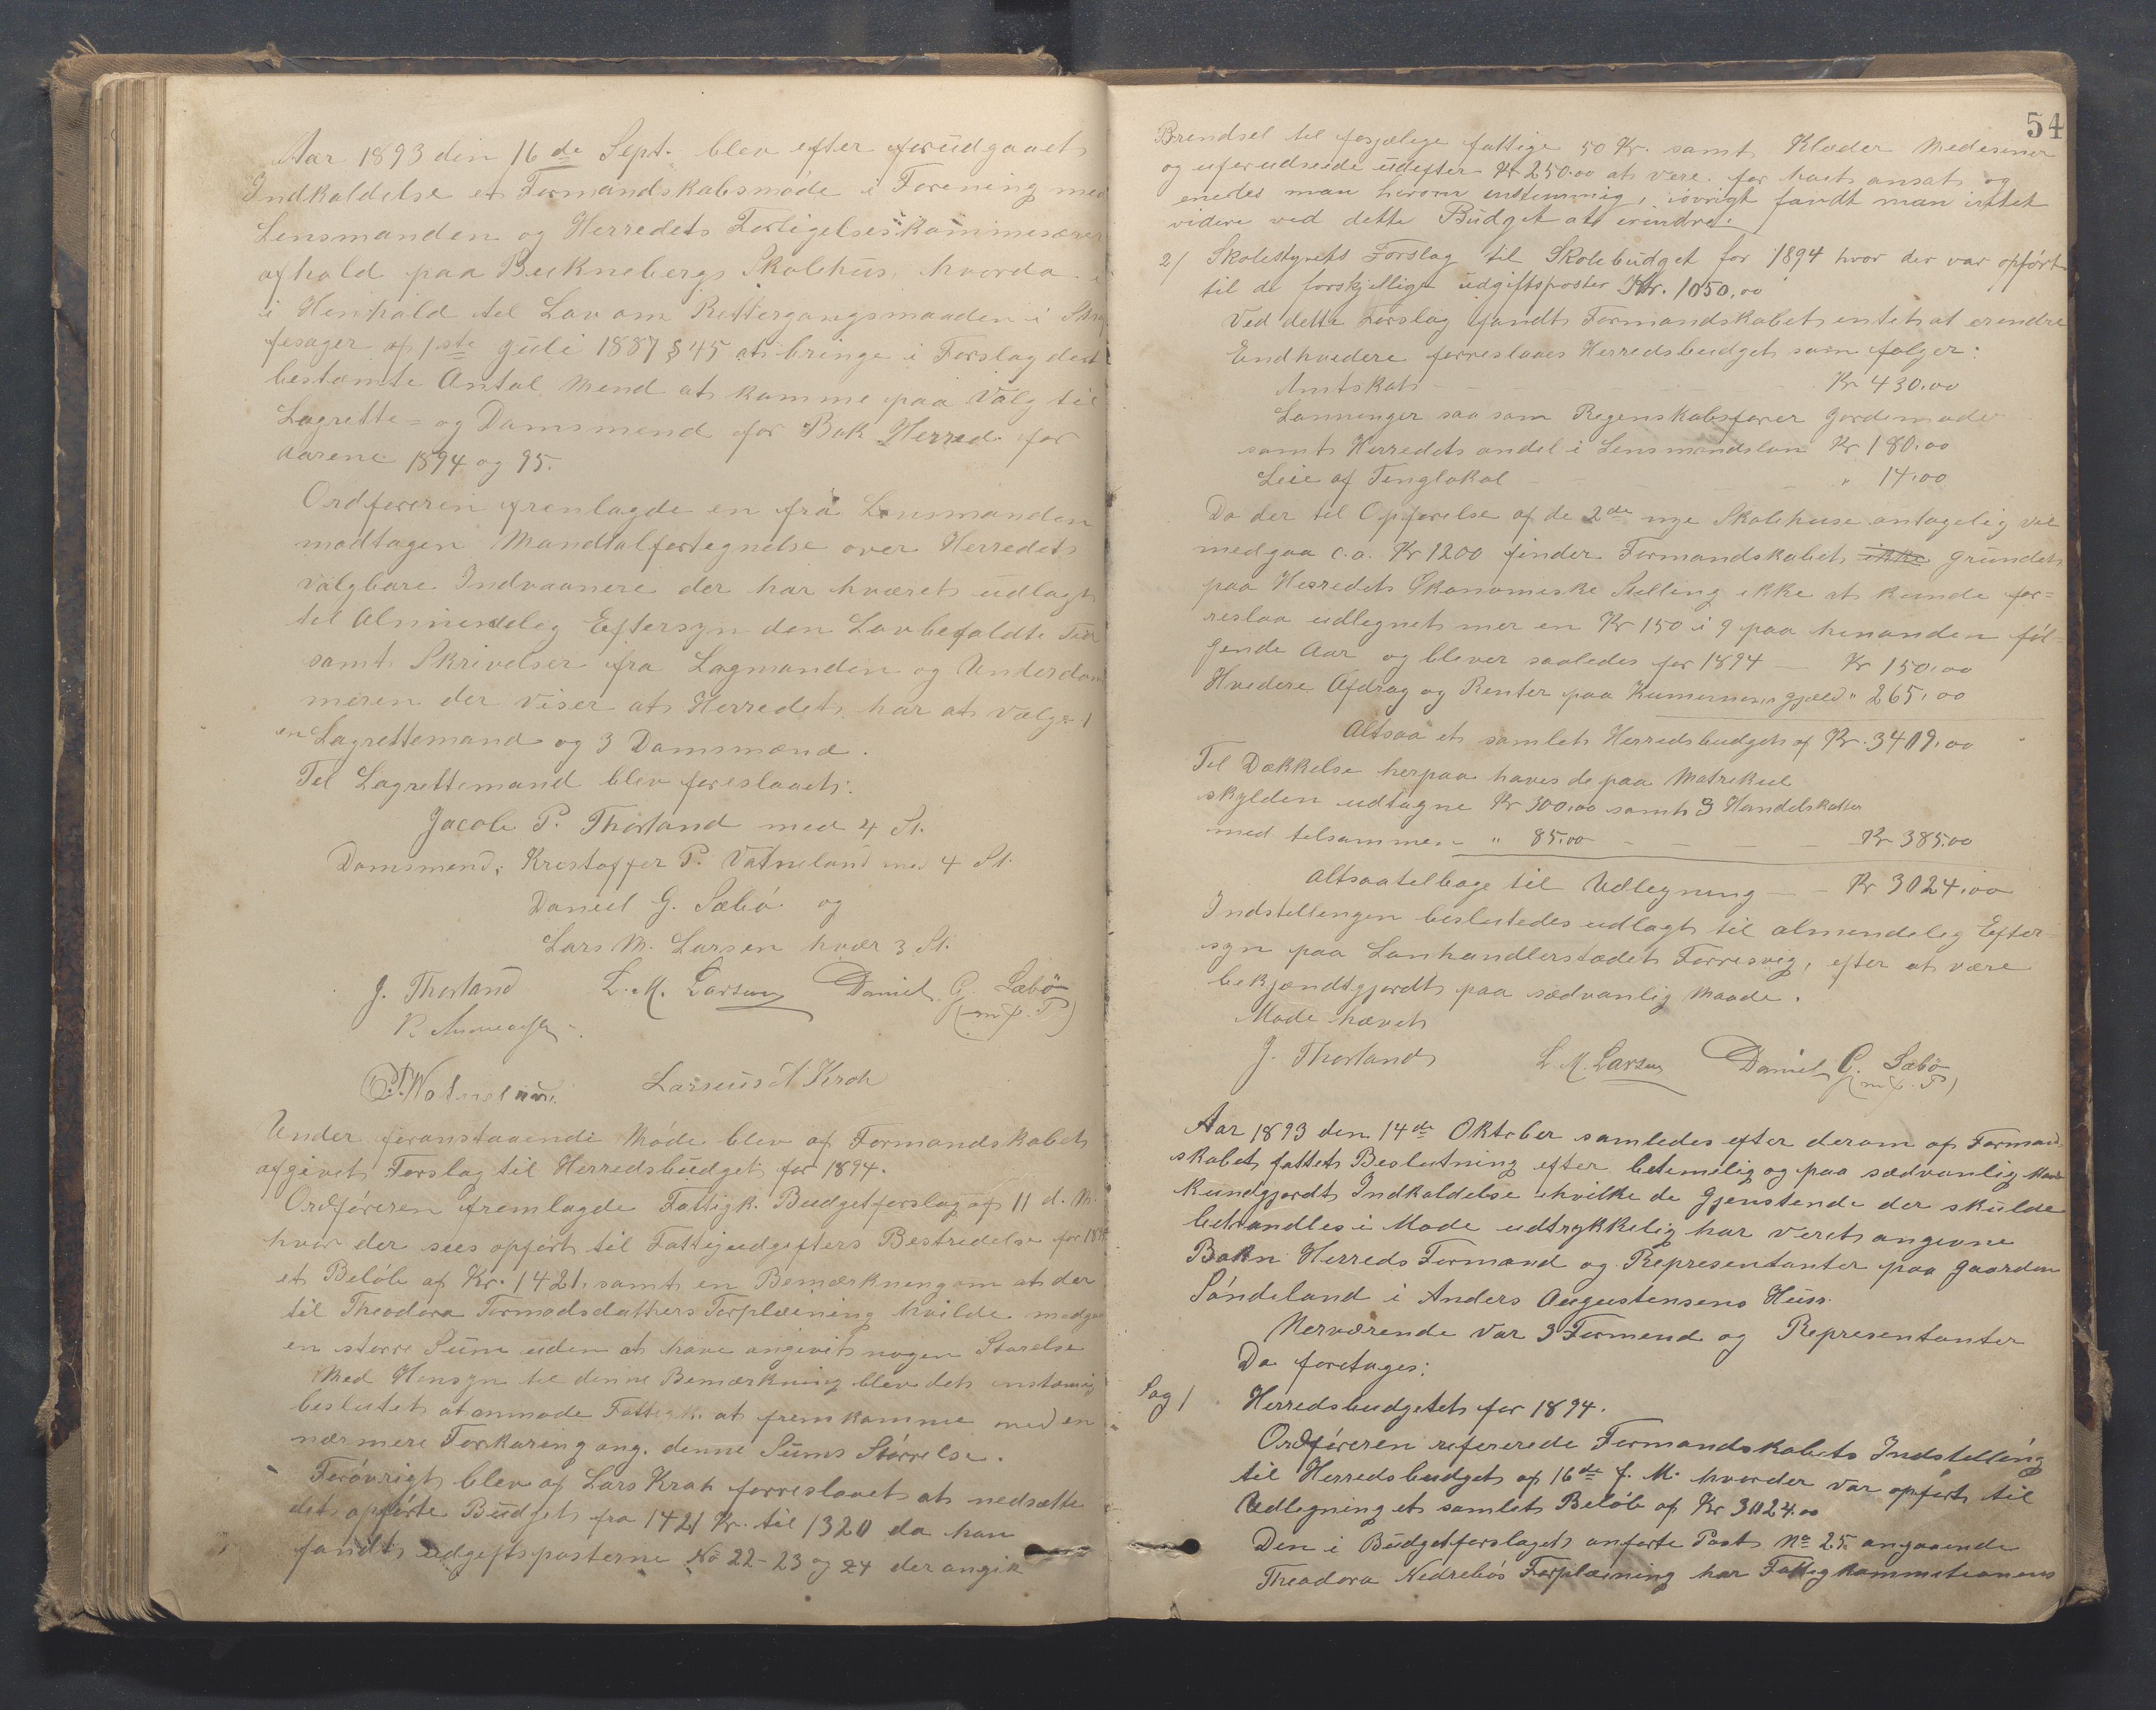 Aar 1893 den 16de Sept. blev efter forudgaaet
Indkaldelse et Formandskabsmöde i Forening med
Lensmanden og Herredets Forligelseskommisærer
afhold paa Buknebergs Skolehus, hvorda
i Henhold til Lov om Rettergangsmaaden i Straf
fesager af 1ste Juli 1887 § 45 at bringe i Forslag det
bestemte Antal Mend at komme paa Valg til
Lagrette- og Domsmend for Bok Herred for
Aarene 1894 og 95.
Ordføreren fremlagde en fra Lensmanden
modtagen Mandtalfortegnelse over Herredets
valgbare Indvaanere der har hværet udlagt
til Almindelig Eftersyn den Lovbefaldte Tid
samt Skrivelser fra Lagmanden og Underdom
meren der viser at Herredet har at vælge 1
en Lagrettemand og 3 Domsmænd.
Til Lagrettemand blev foreslaaet:
Jacob P. Thorland med 4 St.
Domsmend: Krestoffer P. Vatneland med 4 St.
Daniel G. Sæbö og
Lars M. Larsen hvær 3 St.
J. Thorland L. M. Larsen Daniel G. Sæbö
(m. p. P)
P. Vatneland Larseus A Kroh
Under foranstaaende Möde blev af Formandskabet
afgivet Forslag til Herredsbudget for 1894.
Ordföreren fremlagde Fattigk. Budgetforslag af 11 d. M.
hvor der sees opfört til Fattigudgifters Bestredelse for 1894
et Belöb af Kr. 1421, samt en Bemærkning om at der
til Theodora Tormodsdatters Forplæining hvilde medgaa
en större Sum uden at have angivet nogen Storelse
Med Hensyn til denne Bemærkning blev det enstemig
beslutet at anmode Fattigk. at fremkomme med en
nærmere Forklaring ang. denne Sums Störrelse.
Forövrigt blev af Lars Krah forreslaaet at nedsætte
det opförte Budget fra 1421 Kr. til 1320 da han
fandt udgiftsposterne No 22-23 og 24 der angik
54
Brendsel til forsjælige fattige 50 Kr. samt Klæder Medesiner
og uforudseide udefter Kr 250.00 at være for høit ansat og
enedes man herom enstemmig, iövrigt fandt man intet
videre ved dette Budget at erindre.
2/ Skolestyrets Forslag til Skolebudget for 1894 hvor der var opfört
til de forskjellige udgiftsposter Kr. 1050,00
Ved dette Forslag fandt Formandskabet entet at erendre
Endhvedere forreslaaes Herredsbudget som følger:
Amtskat - - - - Kr 430.00
Lønninger saa som Regenskabsfører Jordemoder
samt Herredets andel i Lensmandsløn Kr 180.00
Leie af Tinglokal - - - " 14.00
Da der til Opførelse af de 2de nye Skolehuse antagelig vil
medgaa c.a. Kr 1200 finder Formandskabet ikke grundet
paa Herredets Økonomiske Stelling ikke at kunde for=
reslaa udlegnet mer en Kr 150 i 9 paa hinanden föl-
gende Aar og blever saaledes for 1894 — Kr 150.00
Hvedere Afdrag og Renter paa Kumunens gjæld " 265,00
Altsaa et samlet Herredsbudget af Kr. 3409.00
Til Dækkelse herpaa haves de paa Matrikul
skylden udtagne Kr 300.00 samt 3 Handelskatter
med tilsammen - " 85.00 - - - Kr 385.00
Altsaatelbage til Udlegning — Kr 3024.00
Indstellingen beslutedes udlagt til almendelig Efter-
syn paa Lanhandlerstædet Førresvig, efter at være
bekjendtgjordt paa sædvanlig Maade.
Møde hævet
J. Thorland L. M. Larsen Daniel G. Sæbö
(m. p. P)
Aar 1893 den 14de Oktober samledes efter derom af Formand
skabet fattet Beslutning efter betimelig og paa sædvanlig Maade
Kundgjordt Indkaldelse i hvilke de Gjenstende der skulde
behandles i Møde udtrykkelig har veret angivne
Bokn Herreds Formænd og Representanter paa Gaarden
Söndeland i Anders Augustensens Huus.
Nerværende var 3 Formend og Representanter
Da foretages:
Sag 1 Herredsbudgetet for 1894.
Ordföreren refererede Formandskabets Indstelling
til Herredsbudget af 16de f. M. hvorder var opfört til
Udlegning et samlet Belöb af Kr 3024.00
Den i Budgetforslaget anførte Post No 25 angaaende
Theodora Nedrebös Forplæining har Fattigkommitionens